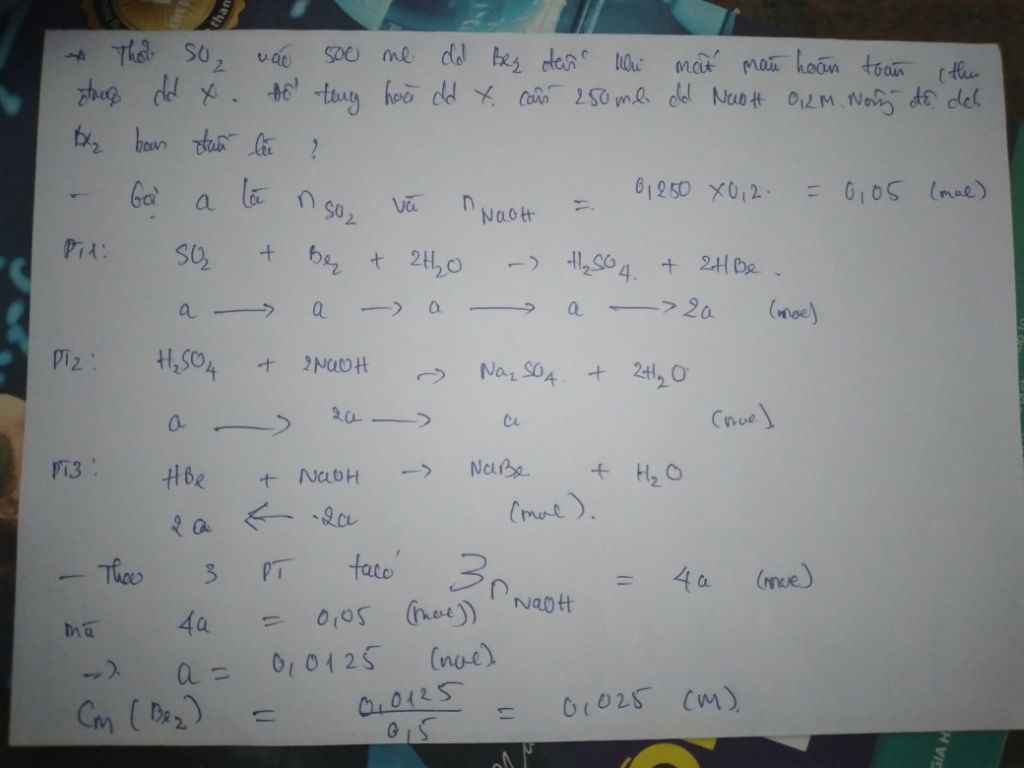 → Thổi SO2 vào 500 ml dd Br2 đến khi mất màu hoàn toàn (thu
được dd X. Để trung hoà dd X. cần 250ml dd NaOH 0,2M. Nồng độ dd
Br2 ban đầu là ?
- Gọi a là nSO2 và nNaOH = 0,250 x 0,2. = 0,05 (mol)
PT1: SO2 + Br2 + 2H2O → H2SO4. + 2HBr.
a → a → a → a → 2a (mol)
PT2: H2SO4 + 2NaOH → Na2SO4. + 2H2O
a → 2a → a (mol)
PT3: HBr + NaOH → NaBr + H2O
2a ← 2a (mol).
- Theo 3 PT ta có 3 nNaOH = 4a (mol)
mà 4a = 0,05 (mol))
→. a = 0,0125 (mol).
CM (Br2) = 0,0125 / 0,5 = 0,025 (M).
than
GIA H